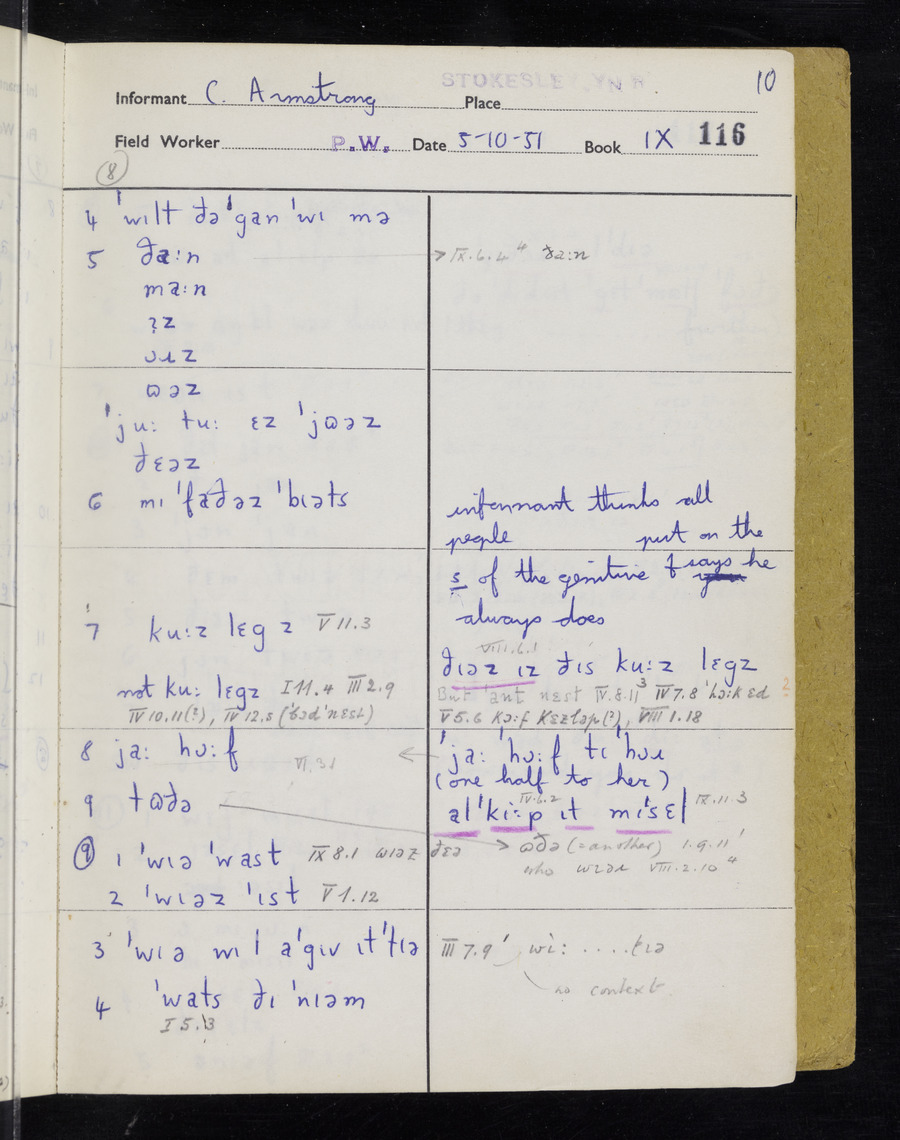 STOKESLEY YN R. 10
Informant C. Armstrong Place
Field Worker P.W. Date 5-10-51 Book IX 116
8
4 ˈwɪlt ðəˈgan ˈwɪ mə
5 ða:n → IX.6.4⁴ ða:n
ma:n
ɪz
ʊɹz
ɷəz
ˈju: tu: ɛz ˈjɷəz
ðɛəz
6 mɪ ˈfaðəz ˈbɪəts
informant thinks all
people put on the
s of the genitive & says he
always does
7 ku:z lɛg z V 11.3
VIII.6.1
ðɪəz ɪz ðɪs ku:z lɛgz
not ku: lɛgz I 11.4 III 2.9
But ˈant nɛst IV.8.11³ IV 7.8
IV 10.11(?), IV 12.5 (ˈbəd ˈnɛst)
V 5.6 VIII 1.18
8 ja: hɔ:f VI.31
ˈja: ˈhɔ:f tɪ ˈhɔɹ
(one half to her)
9 tɷðə
IV.6.2
alˈki:p ɪt mɪˈsɛl IX.11.3
9 1 ˈwɪə ˈwast IX 8.1 ɷɪəz ðɛə
→ ɷðə (= another) 1.9.11ˈ
who wɪəɹ VIII.2.10⁴
2 ˈwɪəz ˈɪst V 1.12
3 ˈwɪə wɪ l aˈgɪv ɪtˈtɪə III 7.9ˈ wi: ....tɪə
no context
4 ˈwats ðɪ ˈnɪəm
I 5.13